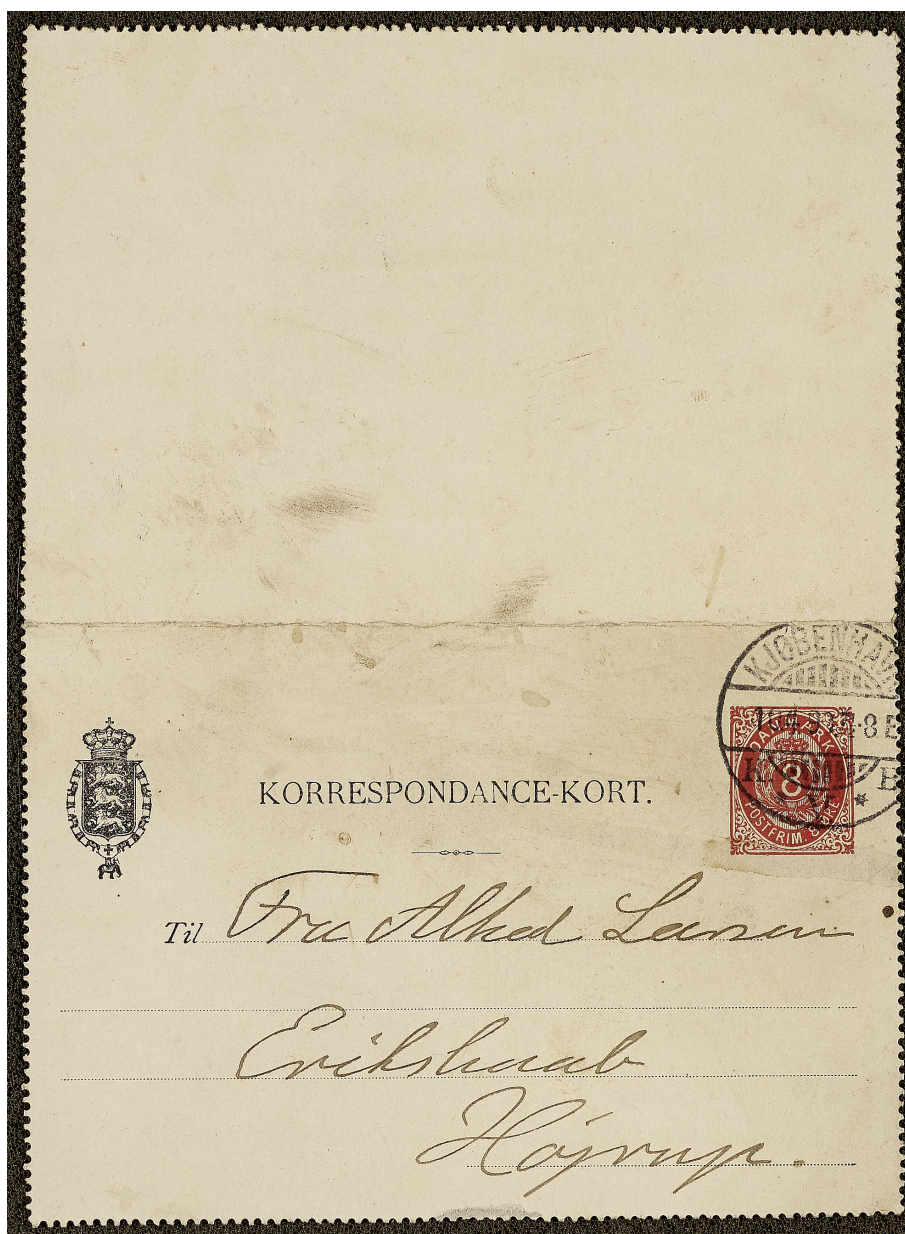 KJØBENHAVN
DANMARK
8
POSTFRIM. ØRE
KORRESPONDANCE-KORT.
Til Fru Alhed Larsen
Erikshaab
Højrup.